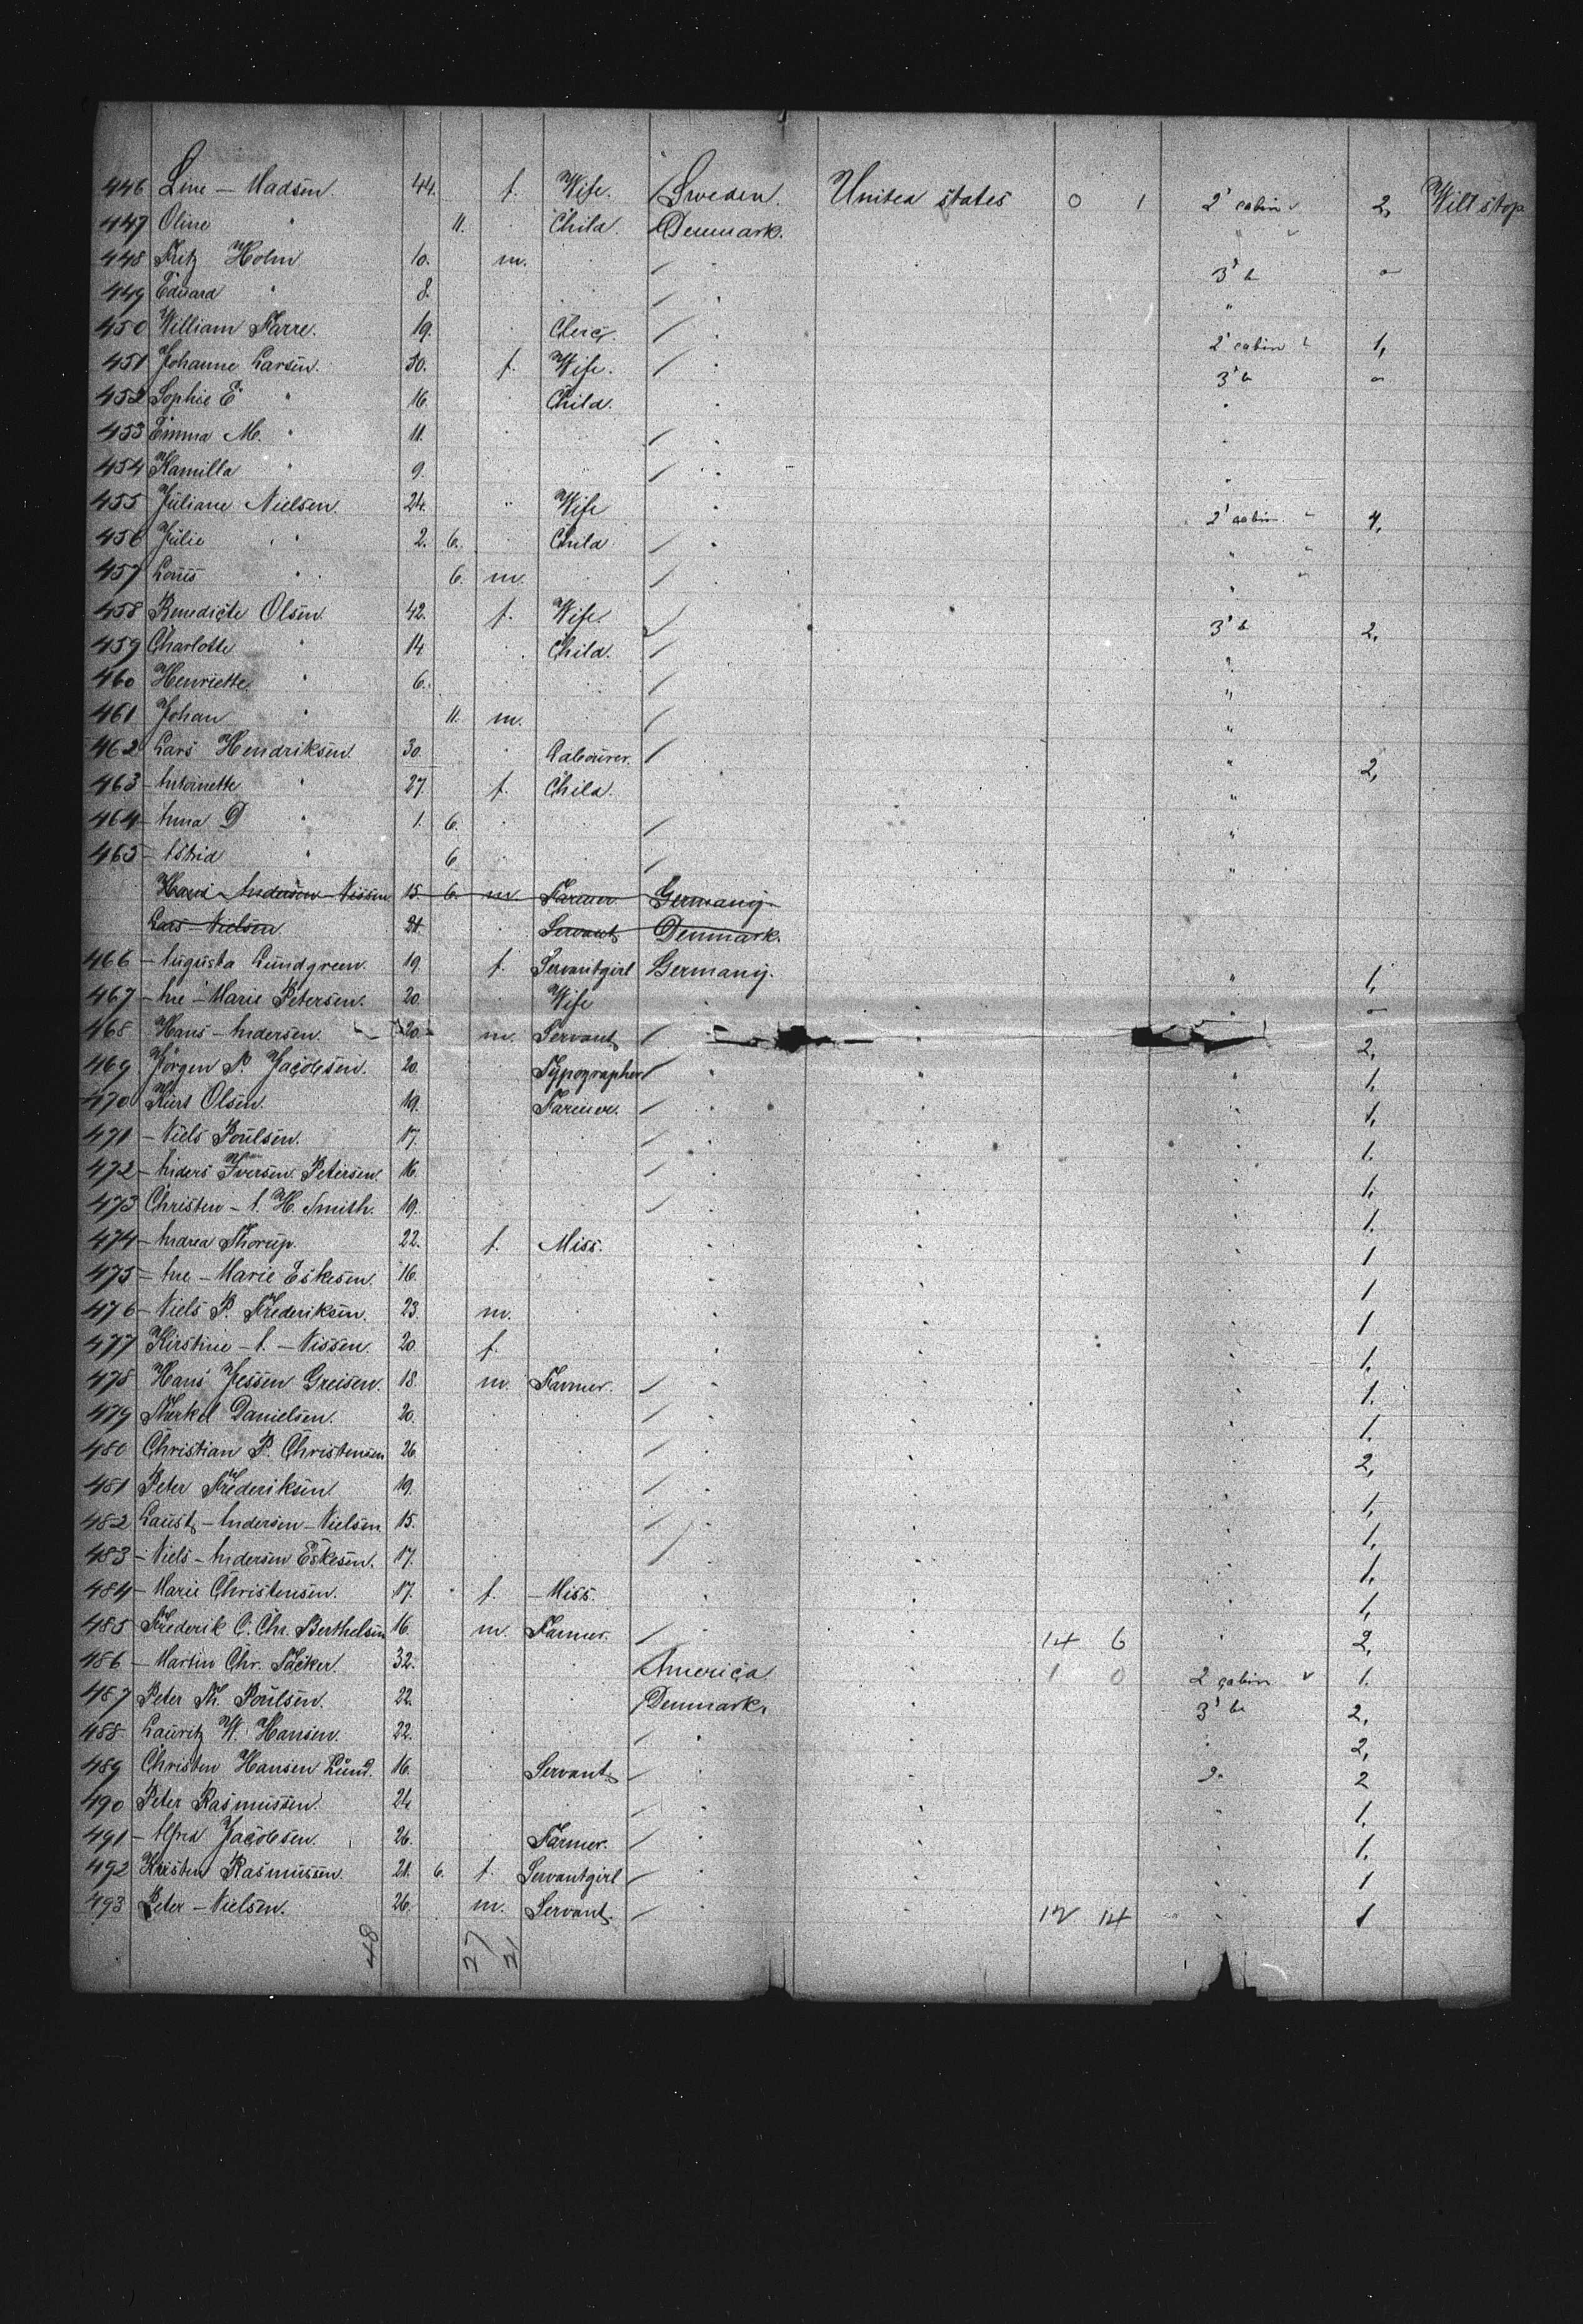 446 Line Madsen. 44. f. Wife. Sweden. United states 0 1 2' cabin 2, Will stop
447 Oline " 11. Child. Denmark. " "
448 Fritz Holm 10. m. 3' b
449 Eduard " 8. "
450 William Farre. 19. Clerc. 2' cabin 1,
451 Johanne Larsen. 30. f. Wife. 3' b
452 Sophie E " 16. Child.
453 Emma M. " 11.
454 Kamilla " 9. "
455 Juliane Nielsen. 24. " Wife 2' cabin " 4,
456 Julie " 2. 6. Child " "
457 Louis " 6. m. "
458 Benedicte Olsen. 42. f. Wife. 3' b 2,
459 Charlotte " 14 Child. "
460 Henriette " 6. "
461 Johan " 11. m. "
462 Lars Hendriksen. 30. Labourer. " 2,
463 Antoinette " 27. f. Child. "
464 Anna D " 1. 6. "
465 Astrid " 6 "
Hans Andersen Nissen 15. 6. m. Farmer Germany
Lars Nielsen 21. Servant Denmark.
466 Augusta Lundgreen. 19. f. Servantgirl Germany. " 1,
467 Ane Marie Petersen. 20. Wife "
468 Hans Andersen. 20. m. Servant 2,
469 Jörgen P. Jacobsen. 20. Typographer " 1,
470 Kurt Olsen. 19. Farmer. " 1,
471 Niels Poulsen. 17. " 1.
472 Anders Iversen Petersen. 16. " 1,
473 Christen A. H. Smith. 19. " 1.
474 Andrea Thorup. 22. f. Miss. " 1
475 Ane Marie Eskesen. 16. 1
476 Niels P. Frederiksen. 23. m. " 1
477 Kirstine A. Nissen. 20. f. " 1,
478 Hans Jessen Greisen. 18. m. Farmer. " 1.
479 Therkel Danielsen. 20. " 1.
480 Christian P. Christensen 26. " 2,
481 Peter Frederiksen 19. " 1,
482 Laust Andersen Nielsen 15. " 1,
483 Niels Andersen Eskesen. 17. " 1,
484 Marie Christensen. 17. f. Miss. " 1,
485 Frederik C. Chr. Berthelsen 16. m. Farmer. 14 6 " 2,
486 Martin Chr. Säcker. 32. America 1 0 2 cabin 1.
487 Peter Th. Poulsen. 22. Denmark. 3' b 2,
488 Lauritz W. Hansen. 22. " 2,
489 Christen Hansen Lund. 16. Servant 2
490 Peter Rasmussen. 24 " 1.
491 Alfred Jacobsen. 26. Farmer. " 1.
492 Kristen Rasmussen. 21. 6. f. Servantgirl " 1
493 Peter Nielsen. 26. m. Servant 12 14 " 1
48 27 21